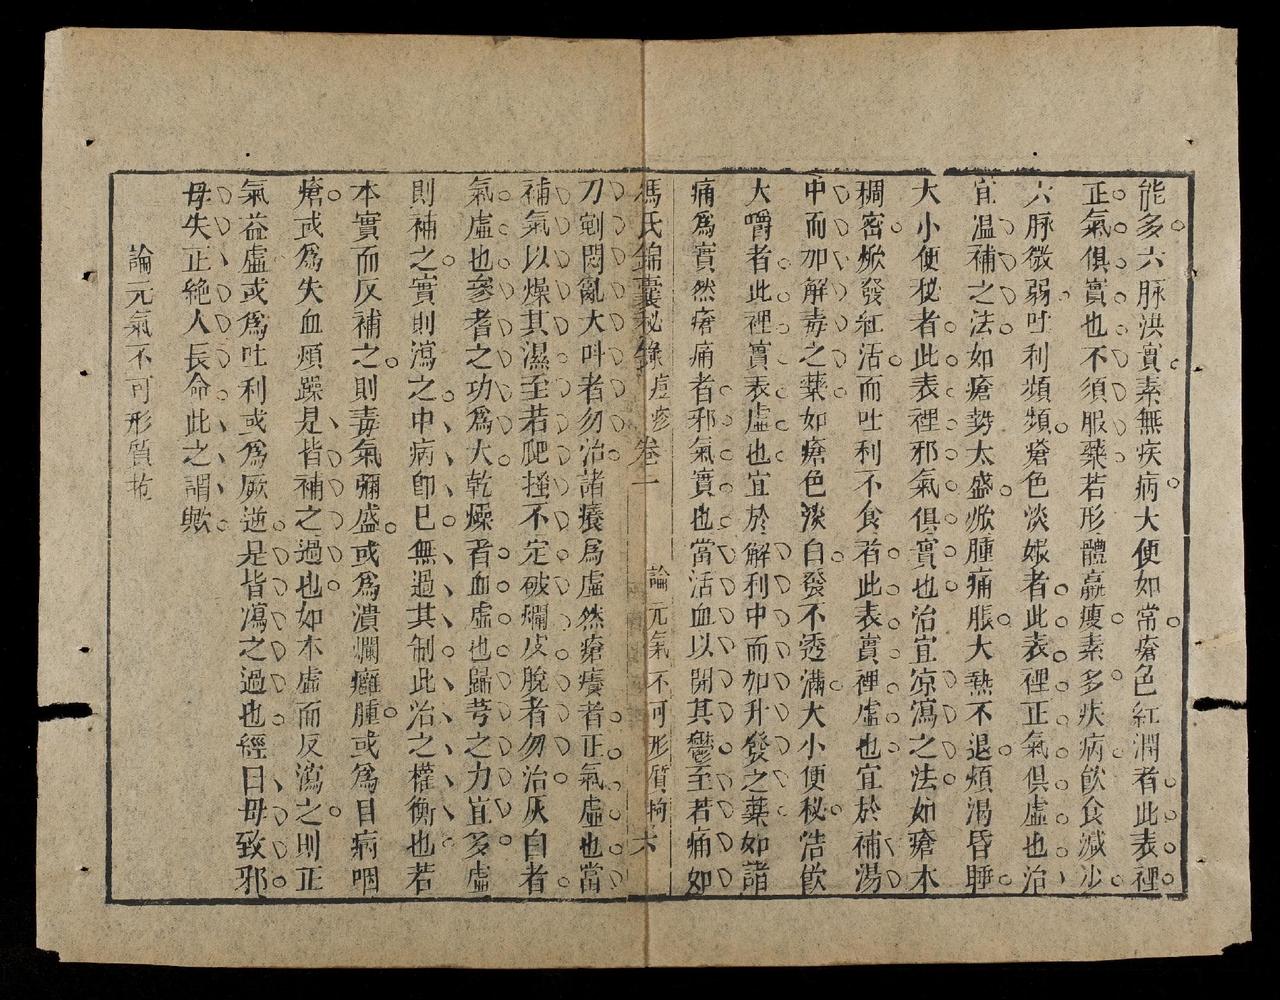 能多六脉洪實素無疾病大便如常瘡色紅潤者此表裡
正氣俱實也不須服藥若形體羸瘦素多疾病飮食减少
六脉微弱吐利頻頻瘡色淡嫩者此表裡正氣俱虛也治
宜温補之法如瘡勢太盛焮腫痛脹大熱不退煩渴昏睡
大小便秘者此表裡邪氣俱實也治宜凉瀉之法如瘡本
稠密焮發紅活而吐利不食者此表實裡虛也宜於補湯
中而加解毒之藥如瘡色淡白發不透滿大小便秘浩飮
大嚼者此裡實表虛也宜於解利中而加升發之藥如諸
痛爲實然瘡痛者邪氣實也當活血以開其鬱至若痛如
馮氏錦囊秘錄痘疹卷二 論元氣不可形質拘 六
刀剜悶亂大呌者勿治諸癢爲虛然瘡癢者正氣虛也當
補氣以燥其濕至若爬搔不定破爛皮脫者勿治灰白者
氣虛也參耆之功爲大乾燥者血虛也歸芎之力宜多虛
則補之實則瀉之中病卽已無過其制此治之權衡也若
本實而反補之則毒氣彌盛或爲潰爛癰腫或爲目病咽
瘡或爲失血煩躁是皆補之過也如本虛而反瀉之則正
氣益虛或爲吐利或爲厥逆是皆瀉之過也經曰毋致邪
毋失正絶人長命此之謂歟
論元氣不可形質拘